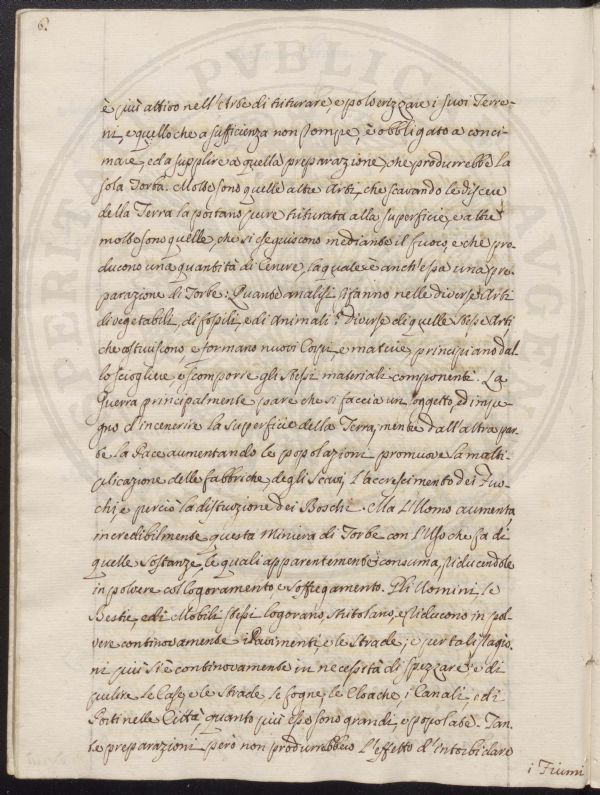 6.
è più attivo nell'Arte di triturare, e polverizzare i suoi Terre-
ni, e quello che a sufficienza non rompe, è obbligato a conci-
mare, ed a supplire a quella preparazione, che produrrebbe la
sola Torba. Molte sono quelle altre Arti, che scavando le viscere
della Terra la portano pure triturata alla superficie, e altre
molte sono quelle, che si eseguiscono mediante il fuoco, e che pro-
ducono una quantità di Cenere, la quale è anch'essa una pre-
parazione di Torbe: Quante analisi si fanno nelle diverse Arti
di vegetabili, di fossili, e di Animali? Diverse di quelle stesse Arti
che costruiscono e formano nuovi Corpi, e materie, principiano dal-
lo sciogliere e scomporre gli stessi materiali componenti. La
Guerra principalmente pare che si faccia un oggetto, ed impe-
gno d'incenerire la superficie della Terra, mentre dall'altra par-
te la Pace aumentando le popolazioni promuove la molti-
plicazione delle fabbriche, degli Scavi, l'accrescimento dei Fuo-
chi, e perciò la distruzione dei Boschi. Ma L'Uomo aumenta
incredibilmente questa Miniera di Torbe con l'Uso che fa di
quelle Sostanze, le quali apparentemente consuma, riducendole
in polvere col logoramento e soffregamento. Gli Uomini, le
Bestie, ed i Mobili stessi logorano, stritolano, e riducono in pol-
vere continovamente i Pavimenti, e le Strade; e per tali ragio-
ni più si è continovamente in necessità di spezzare, e di
pulire le Case, e le Strade, le fogne, le Cloache, i Canali, ed i
Porti nelle Città, quanto più esse sono grandi, e popolate. Tan-
te preparazioni però non produrrebbero l'effetto d'intorbidare
i Fiumi